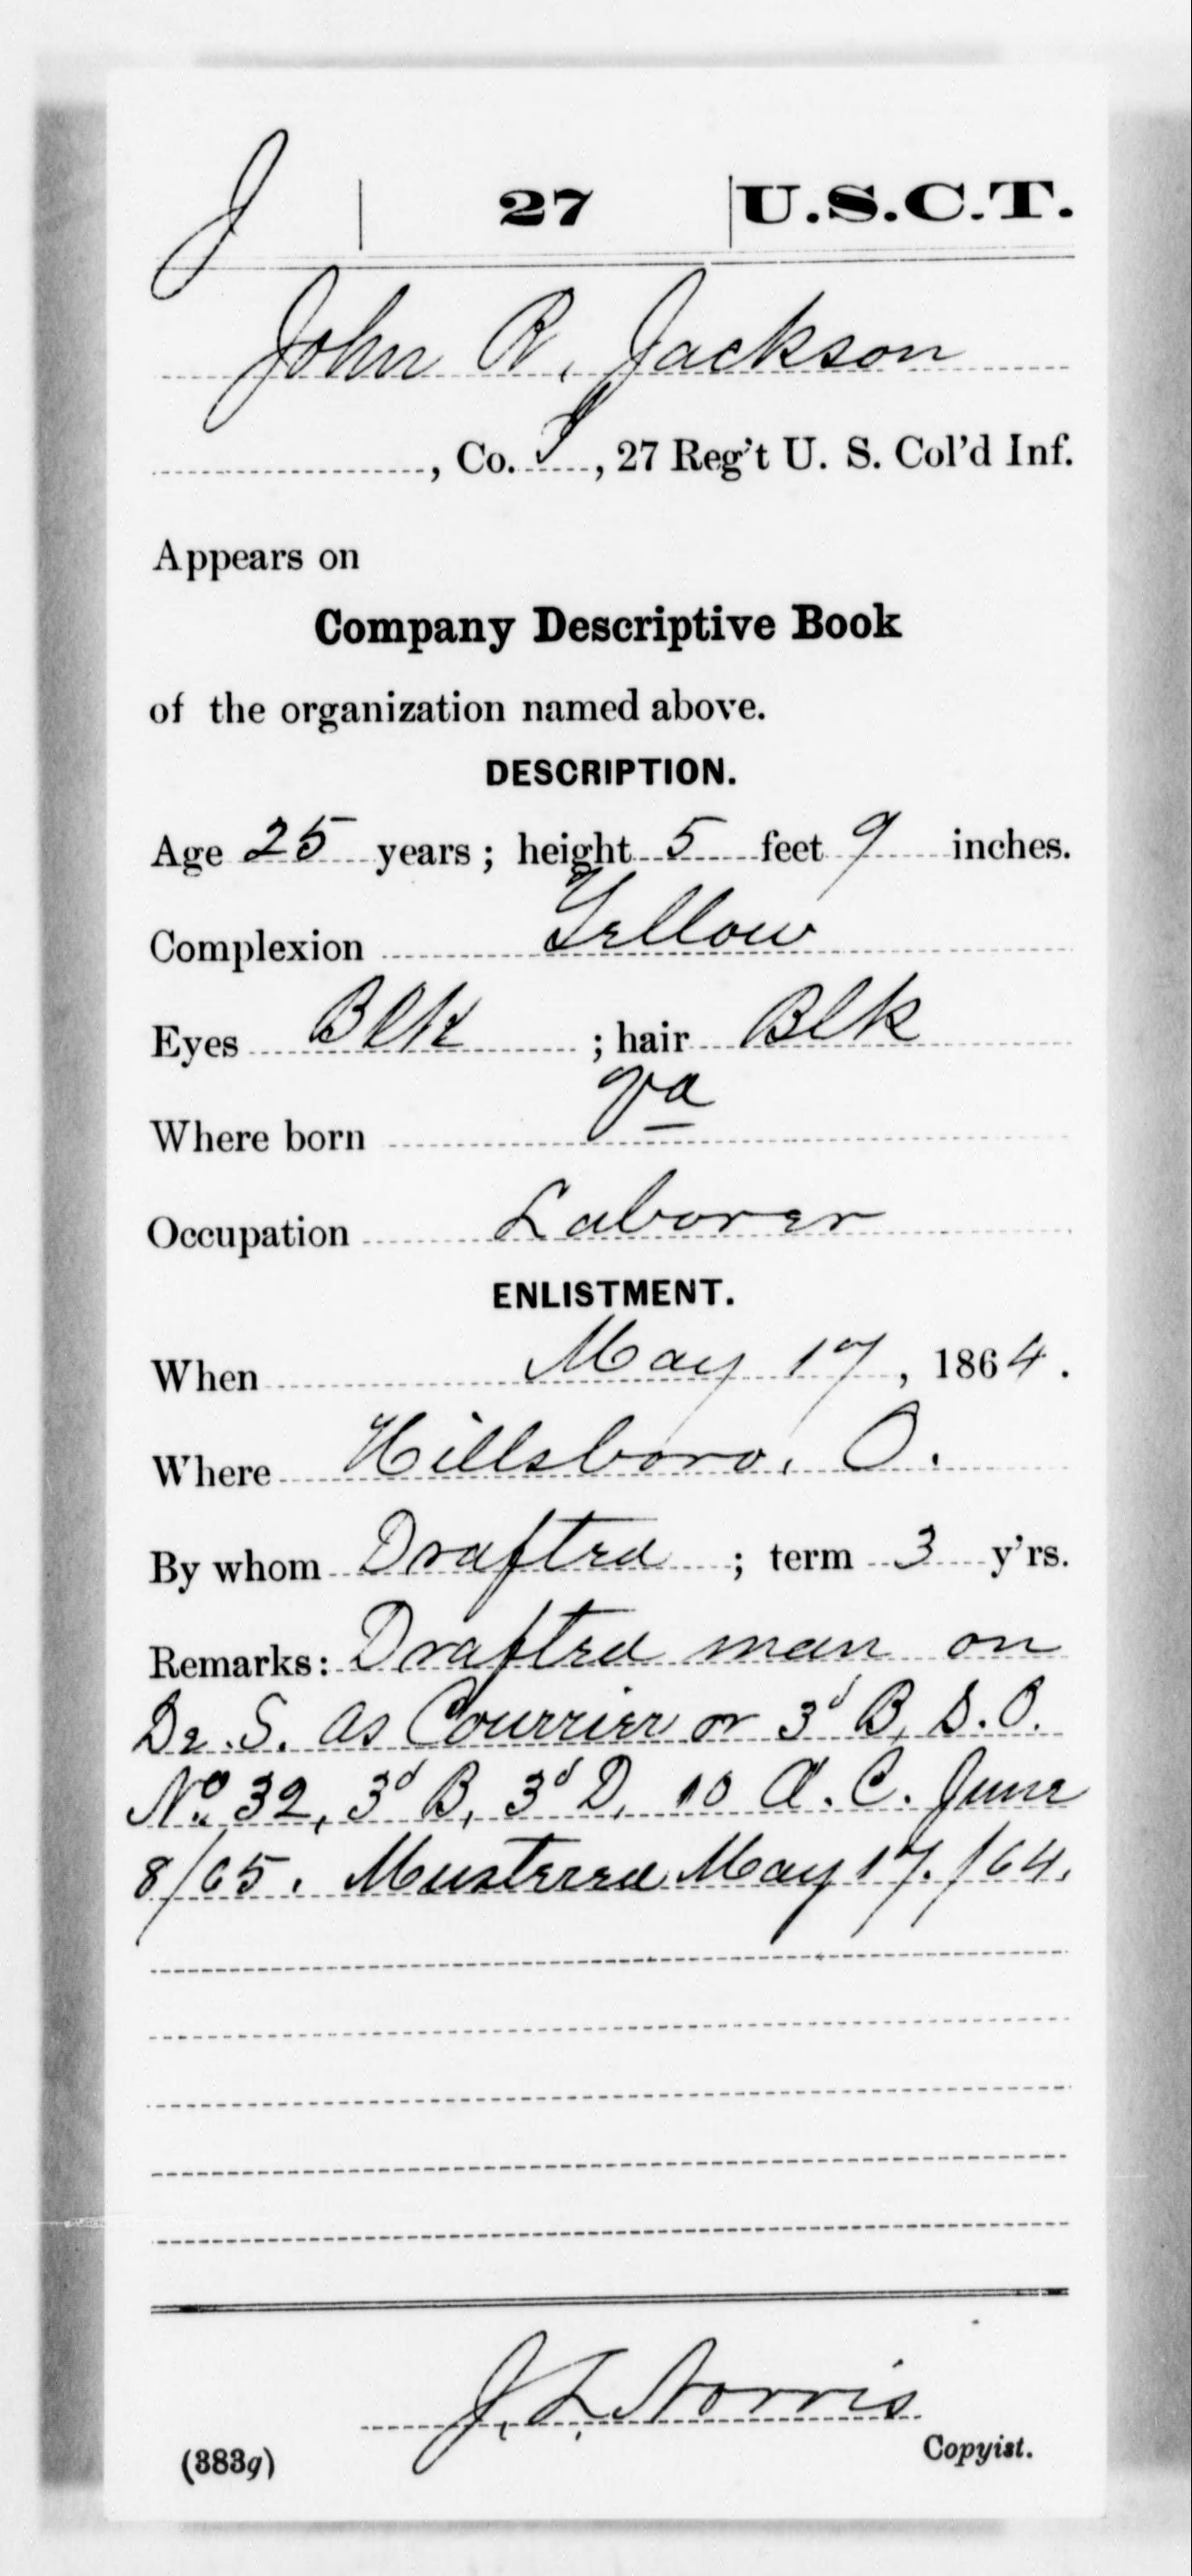 J | 27 | U.S.C.T.
John R. Jackson
, Co. I, 27 Reg't U. S. Col'd Inf.
Appears on
Company Descriptive Book
of the organization named above.
DESCRIPTION.
Age 25 years; height 5 feet 9 inches.
Complexion Yellow
Eyes Blk ; hair Blk
Where born Va
Occupation Laborer
ENLISTMENT.
When May 17, 1864.
Where Hillsboro, O.
By whom Drafted ; term 3 y'rs.
Remarks: Drafted man on
De. S. as Courrier or 3d B, S.O.
No. 32, 3d B, 3d D, 10 A.C. June
8/65. Mustered May 17. /64.
J. L. Norris
Copyist.
(383g)